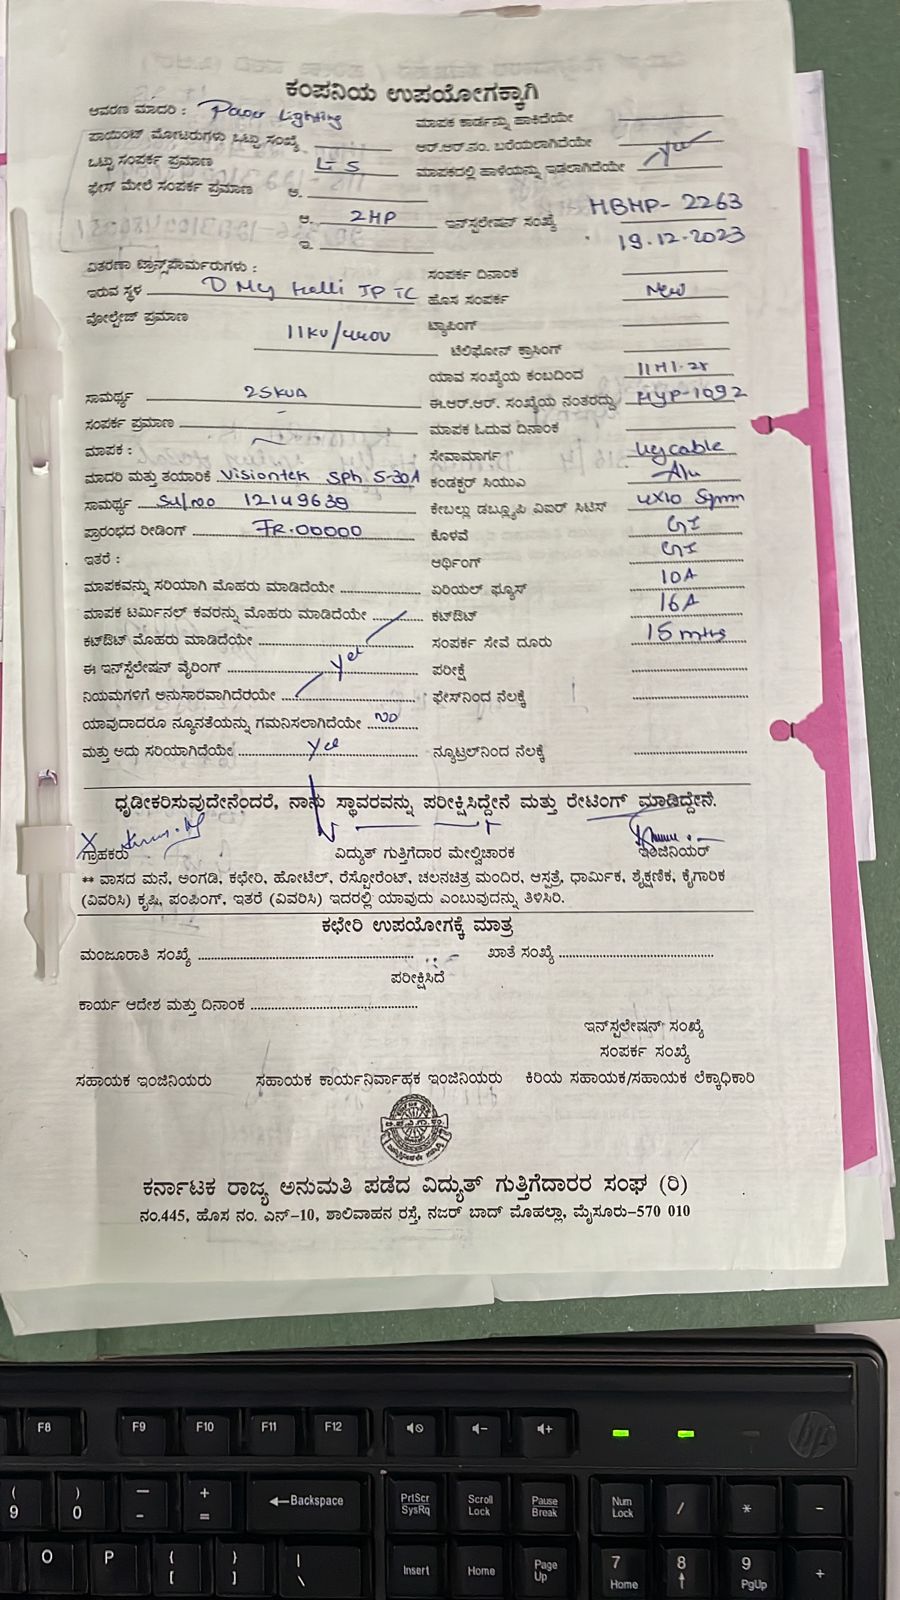 ಕಂಪನಿಯ ಉಪಯೋಗಕ್ಕಾಗಿ
ಆವರಣ ಮಾದರಿ : Power Lighting ಮಾಪಕ ಕಾರ್ಡನ್ನು ಹಾಕಿದೆಯೇ
ಪಾಯಿಂಟ್ ಮೋಟರುಗಳು ಒಟ್ಟು ಸಂಖ್ಯೆ ಆರ್.ಆರ್.ನಂ. ಬರೆಯಲಾಗಿದೆಯೇ
ಒಟ್ಟು ಸಂಪರ್ಕ ಪ್ರಮಾಣ ಮಾಪಕದಲ್ಲಿ ಹಾಳೆಯನ್ನು ಇಡಲಾಗಿದೆಯೇ Yes
ಫೇಸ್ ಮೇಲೆ ಸಂಪರ್ಕ ಪ್ರಮಾಣ ಅ.
ಆ. 2HP ಇನ್‌ಸ್ಟಲೇಷನ್ ಸಂಖ್ಯೆ HBHP-2263
ಇ. 19.12.2023
ವಿತರಣಾ ಟ್ರಾನ್ಸ್‌ಫಾರ್ಮರುಗಳು : ಸಂಪರ್ಕ ದಿನಾಂಕ
ಇರುವ ಸ್ಥಳ ಹೊಸ ಸಂಪರ್ಕ New
ವೋಲ್ಟೇಜ್ ಪ್ರಮಾಣ 11KV/440V ಟ್ಯಾಪಿಂಗ್
ಟೆಲಿಫೋನ್ ಕ್ರಾಸಿಂಗ್
ಯಾವ ಸಂಖ್ಯೆಯ ಕಂಬದಿಂದ
ಸಾಮರ್ಥ್ಯ 25KVA ಈ.ಆರ್.ಆರ್. ಸಂಖ್ಯೆಯ ನಂತರದ್ದು HYP-1092
ಸಂಪರ್ಕ ಪ್ರಮಾಣ - ಮಾಪಕ ಓದುವ ದಿನಾಂಕ
ಮಾಪಕ : ಸೇವಾಮಾರ್ಗ cable
ಮಾದರಿ ಮತ್ತು ತಯಾರಿಕೆ Visiontek Sph 5-30A ಕಂಡಕ್ಟರ್ ಸಿಯುಎ Alu
ಸಾಮರ್ಥ್ಯ Sl/no 12149639 ಕೇಬಲ್ಲು ಡಬ್ಲ್ಯೂಪಿ ವಿಐರ್ ಸಿಟಿಸ್ 4X10 Sqmm
ಪ್ರಾರಂಭದ ರೀಡಿಂಗ್ FR.00000 ಕೊಳವೆ GI
ಇತರೆ : ಆರ್ಥಿಂಗ್ GI
ಮಾಪಕವನ್ನು ಸರಿಯಾಗಿ ಮೊಹರು ಮಾಡಿದೆಯೇ ಏರಿಯಲ್ ಫ್ಯೂಸ್ 10A
ಮಾಪಕ ಟರ್ಮಿನಲ್ ಕವರನ್ನು ಮೊಹರು ಮಾಡಿದೆಯೇ ಕಟ್‌ಔಟ್ 16A
ಕಟ್‌ಔಟ್ ಮೊಹರು ಮಾಡಿದೆಯೇ ಸಂಪರ್ಕ ಸೇವೆ ದೂರು 15 mtrs
ಈ ಇನ್‌ಸ್ಟೆಲೇಷನ್ ವೈರಿಂಗ್ Yes ಪರೀಕ್ಷೆ
ನಿಯಮಗಳಿಗೆ ಅನುಸಾರವಾಗಿದೆರಯೇ ಫೇಸ್‌ನಿಂದ ನೆಲಕ್ಕೆ
ಯಾವುದಾದರೂ ನ್ಯೂನತೆಯನ್ನು ಗಮನಿಸಲಾಗಿದೆಯೇ NO
ಮತ್ತು ಅದು ಸರಿಯಾಗಿದೆಯೇ Yes ನ್ಯೂಟ್ರಲ್‌ನಿಂದ ನೆಲಕ್ಕೆ
ಧೃಡೀಕರಿಸುವುದೇನೆಂದರೆ, ನಾನು ಸ್ಥಾವರವನ್ನು ಪರೀಕ್ಷಿಸಿದ್ದೇನೆ ಮತ್ತು ರೇಟಿಂಗ್ ಮಾಡಿದ್ದೇನೆ.
ಗ್ರಾಹಕರು ವಿದ್ಯುತ್ ಗುತ್ತಿಗೆದಾರ ಮೇಲ್ವಿಚಾರಕ ಇಂಜಿನಿಯರ್
** ವಾಸದ ಮನೆ, ಅಂಗಡಿ, ಕಛೇರಿ, ಹೋಟೆಲ್, ರೆಸ್ಟೋರೆಂಟ್, ಚಲನಚಿತ್ರ ಮಂದಿರ, ಆಸ್ಪತ್ರೆ, ಧಾರ್ಮಿಕ, ಶೈಕ್ಷಣಿಕ, ಕೈಗಾರಿಕ
(ವಿವರಿಸಿ) ಕೃಷಿ, ಪಂಪಿಂಗ್, ಇತರೆ (ವಿವರಿಸಿ) ಇದರಲ್ಲಿ ಯಾವುದು ಎಂಬುವುದನ್ನು ತಿಳಿಸಿರಿ.
ಕಛೇರಿ ಉಪಯೋಗಕ್ಕೆ ಮಾತ್ರ
ಮಂಜೂರಾತಿ ಸಂಖ್ಯೆ ಖಾತೆ ಸಂಖ್ಯೆ
ಪರೀಕ್ಷಿಸಿದೆ
ಕಾರ್ಯ ಆದೇಶ ಮತ್ತು ದಿನಾಂಕ
ಇನ್‌ಸ್ಟಲೇಷನ್ ಸಂಖ್ಯೆ
ಸಂಪರ್ಕ ಸಂಖ್ಯೆ
ಸಹಾಯಕ ಇಂಜಿನಿಯರು ಸಹಾಯಕ ಕಾರ್ಯನಿರ್ವಾಹಕ ಇಂಜಿನಿಯರು ಕಿರಿಯ ಸಹಾಯಕ/ಸಹಾಯಕ ಲೆಕ್ಕಾಧಿಕಾರಿ
ಕರ್ನಾಟಕ ರಾಜ್ಯ ಅನುಮತಿ ಪಡೆದ ವಿದ್ಯುತ್ ಗುತ್ತಿಗೆದಾರರ ಸಂಘ (ರಿ)
ನಂ.445, ಹೊಸ ನಂ. ಎನ್-10, ಶಾಲಿವಾಹನ ರಸ್ತೆ, ನಜರ್ ಬಾದ್ ಮೊಹಲ್ಲಾ, ಮೈಸೂರು-570 010
F8 F9 F10 F11 F12
( 9 ) 0 — - + = Backspace PrtScr SysRq Scroll Lock Pause Break Num Lock / * -
O P { [ } ] | \ Insert Home Page Up 7 Home 8 9 PgUp +
hp